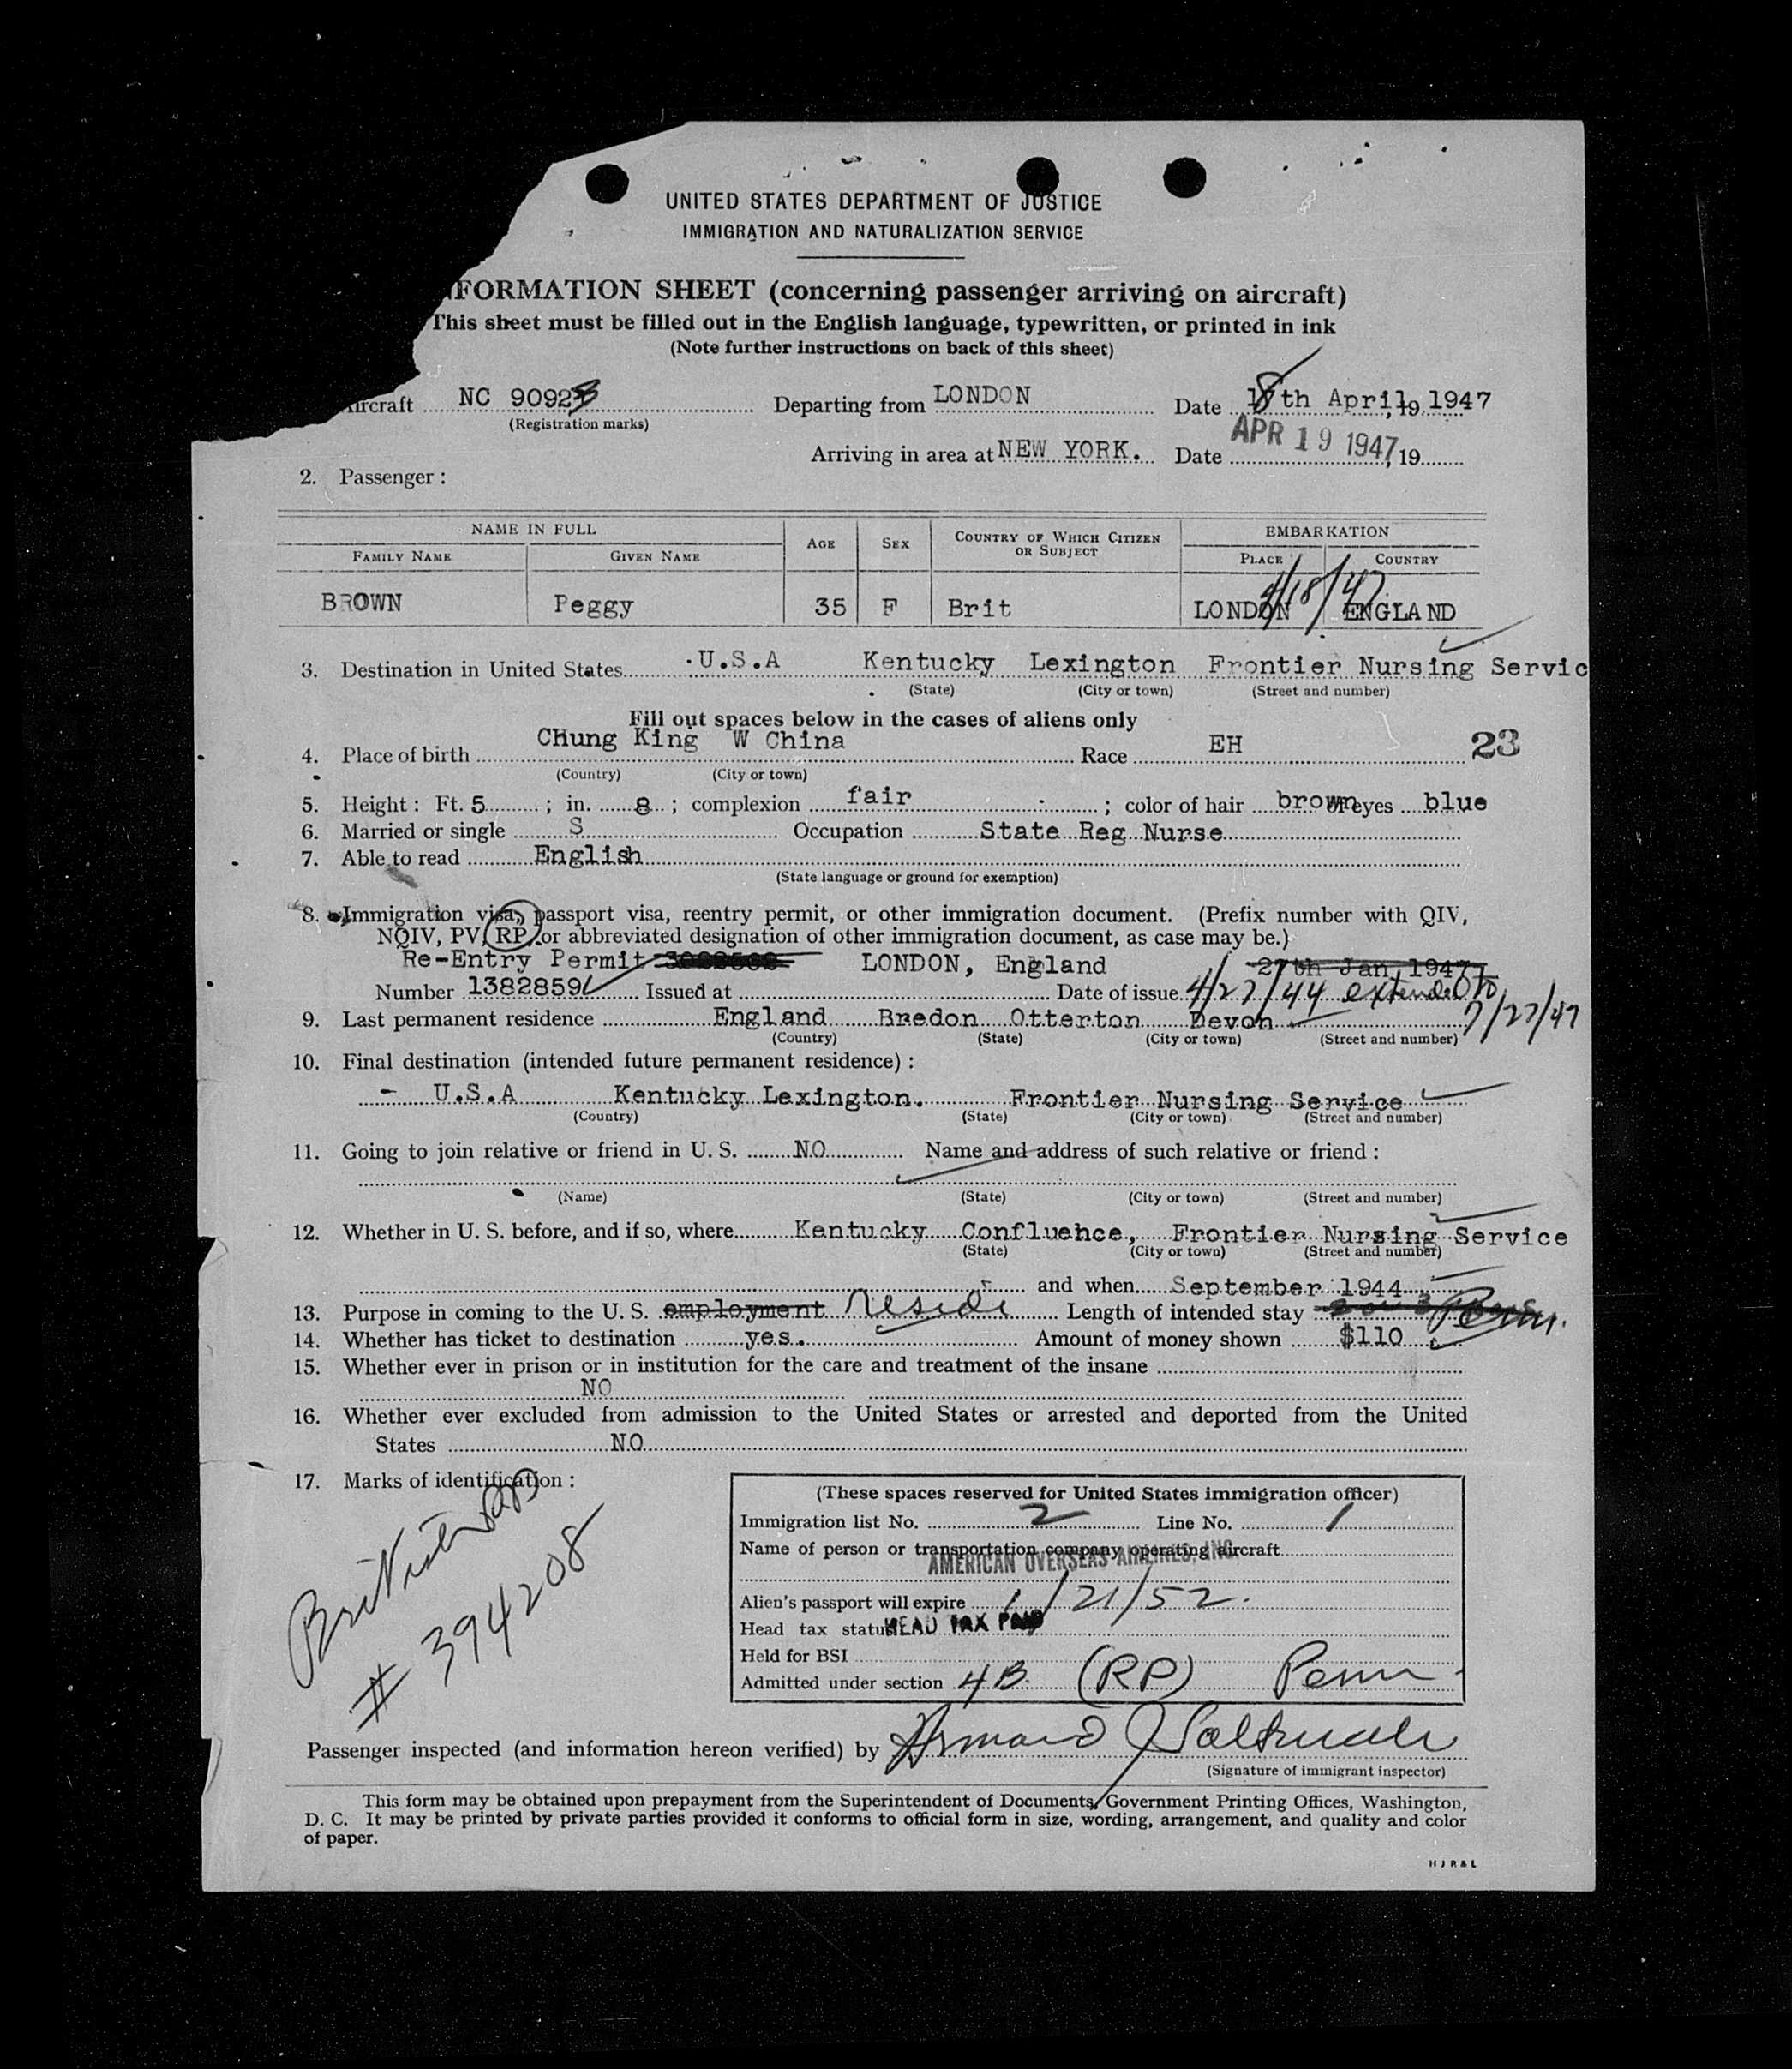 UNITED STATES DEPARTMENT OF JUSTICE
IMMIGRATION AND NATURALIZATION SERVICE
NFORMATION SHEET (concerning passenger arriving on aircraft)
This sheet must be filled out in the English language, typewritten, or printed in ink
(Note further instructions on back of this sheet)
ircraft NC 9092 Departing from LONDON Date 18th April, 19 1947
(Registration marks)
Arriving in area at NEW YORK. Date APR 19 1947, 19
2. Passenger:
NAME IN FULL AGE SEX COUNTRY OF WHICH CITIZEN OR SUBJECT EMBARKATION
FAMILY NAME GIVEN NAME PLACE COUNTRY
4/18/47
BROWN Peggy 35 F Brit LONDON ENGLAND
3. Destination in United States U.S.A Kentucky Lexington Frontier Nursing Servic
(State) (City or town) (Street and number)
Fill out spaces below in the cases of aliens only
4. Place of birth CHung King W China Race EH 23
(Country) (City or town)
5. Height: Ft. 5; in. 8; complexion fair; color of hair brown of eyes blue
6. Married or single S Occupation State Reg Nurse
7. Able to read English
(State language or ground for exemption)
8. Immigration visa, passport visa, reentry permit, or other immigration document. (Prefix number with QIV,
NQIV, PV, RP, or abbreviated designation of other immigration document, as case may be.)
Re-Entry Permit LONDON, England 27th Jan, 1947
Number 1382859 Issued at Date of issue 4/27/44 extended to
7/27/47
9. Last permanent residence England Bredon Otterton Devon
(Country) (State) (City or town) (Street and number)
10. Final destination (intended future permanent residence):
- U.S.A Kentucky Lexington. Frontier Nursing Service
(Country) (State) (City or town) (Street and number)
11. Going to join relative or friend in U. S. NO Name and address of such relative or friend:
(Name) (State) (City or town) (Street and number)
12. Whether in U. S. before, and if so, where Kentucky Confluence, Frontier Nursing Service
(State) (City or town) (Street and number)
and when September 1944
13. Purpose in coming to the U. S. employment Reside Length of intended stay Perm.
14. Whether has ticket to destination yes. Amount of money shown $110
15. Whether ever in prison or in institution for the care and treatment of the insane
NO
16. Whether ever excluded from admission to the United States or arrested and deported from the United
States NO
17. Marks of identification:
British PP
# 394208
(These spaces reserved for United States immigration officer)
Immigration list No. 2 Line No. 1
Name of person or transportation company operating aircraft
AMERICAN OVERSEAS AIRLINES, INC.
Alien's passport will expire 1/21/52.
Head tax status HEAD TAX PAID
Held for BSI
Admitted under section 4B (RP) Perm
Passenger inspected (and information hereon verified) by Armand J
(Signature of immigrant inspector)
This form may be obtained upon prepayment from the Superintendent of Documents, Government Printing Offices, Washington,
D. C. It may be printed by private parties provided it conforms to official form in size, wording, arrangement, and quality and color
of paper.
H J R & L